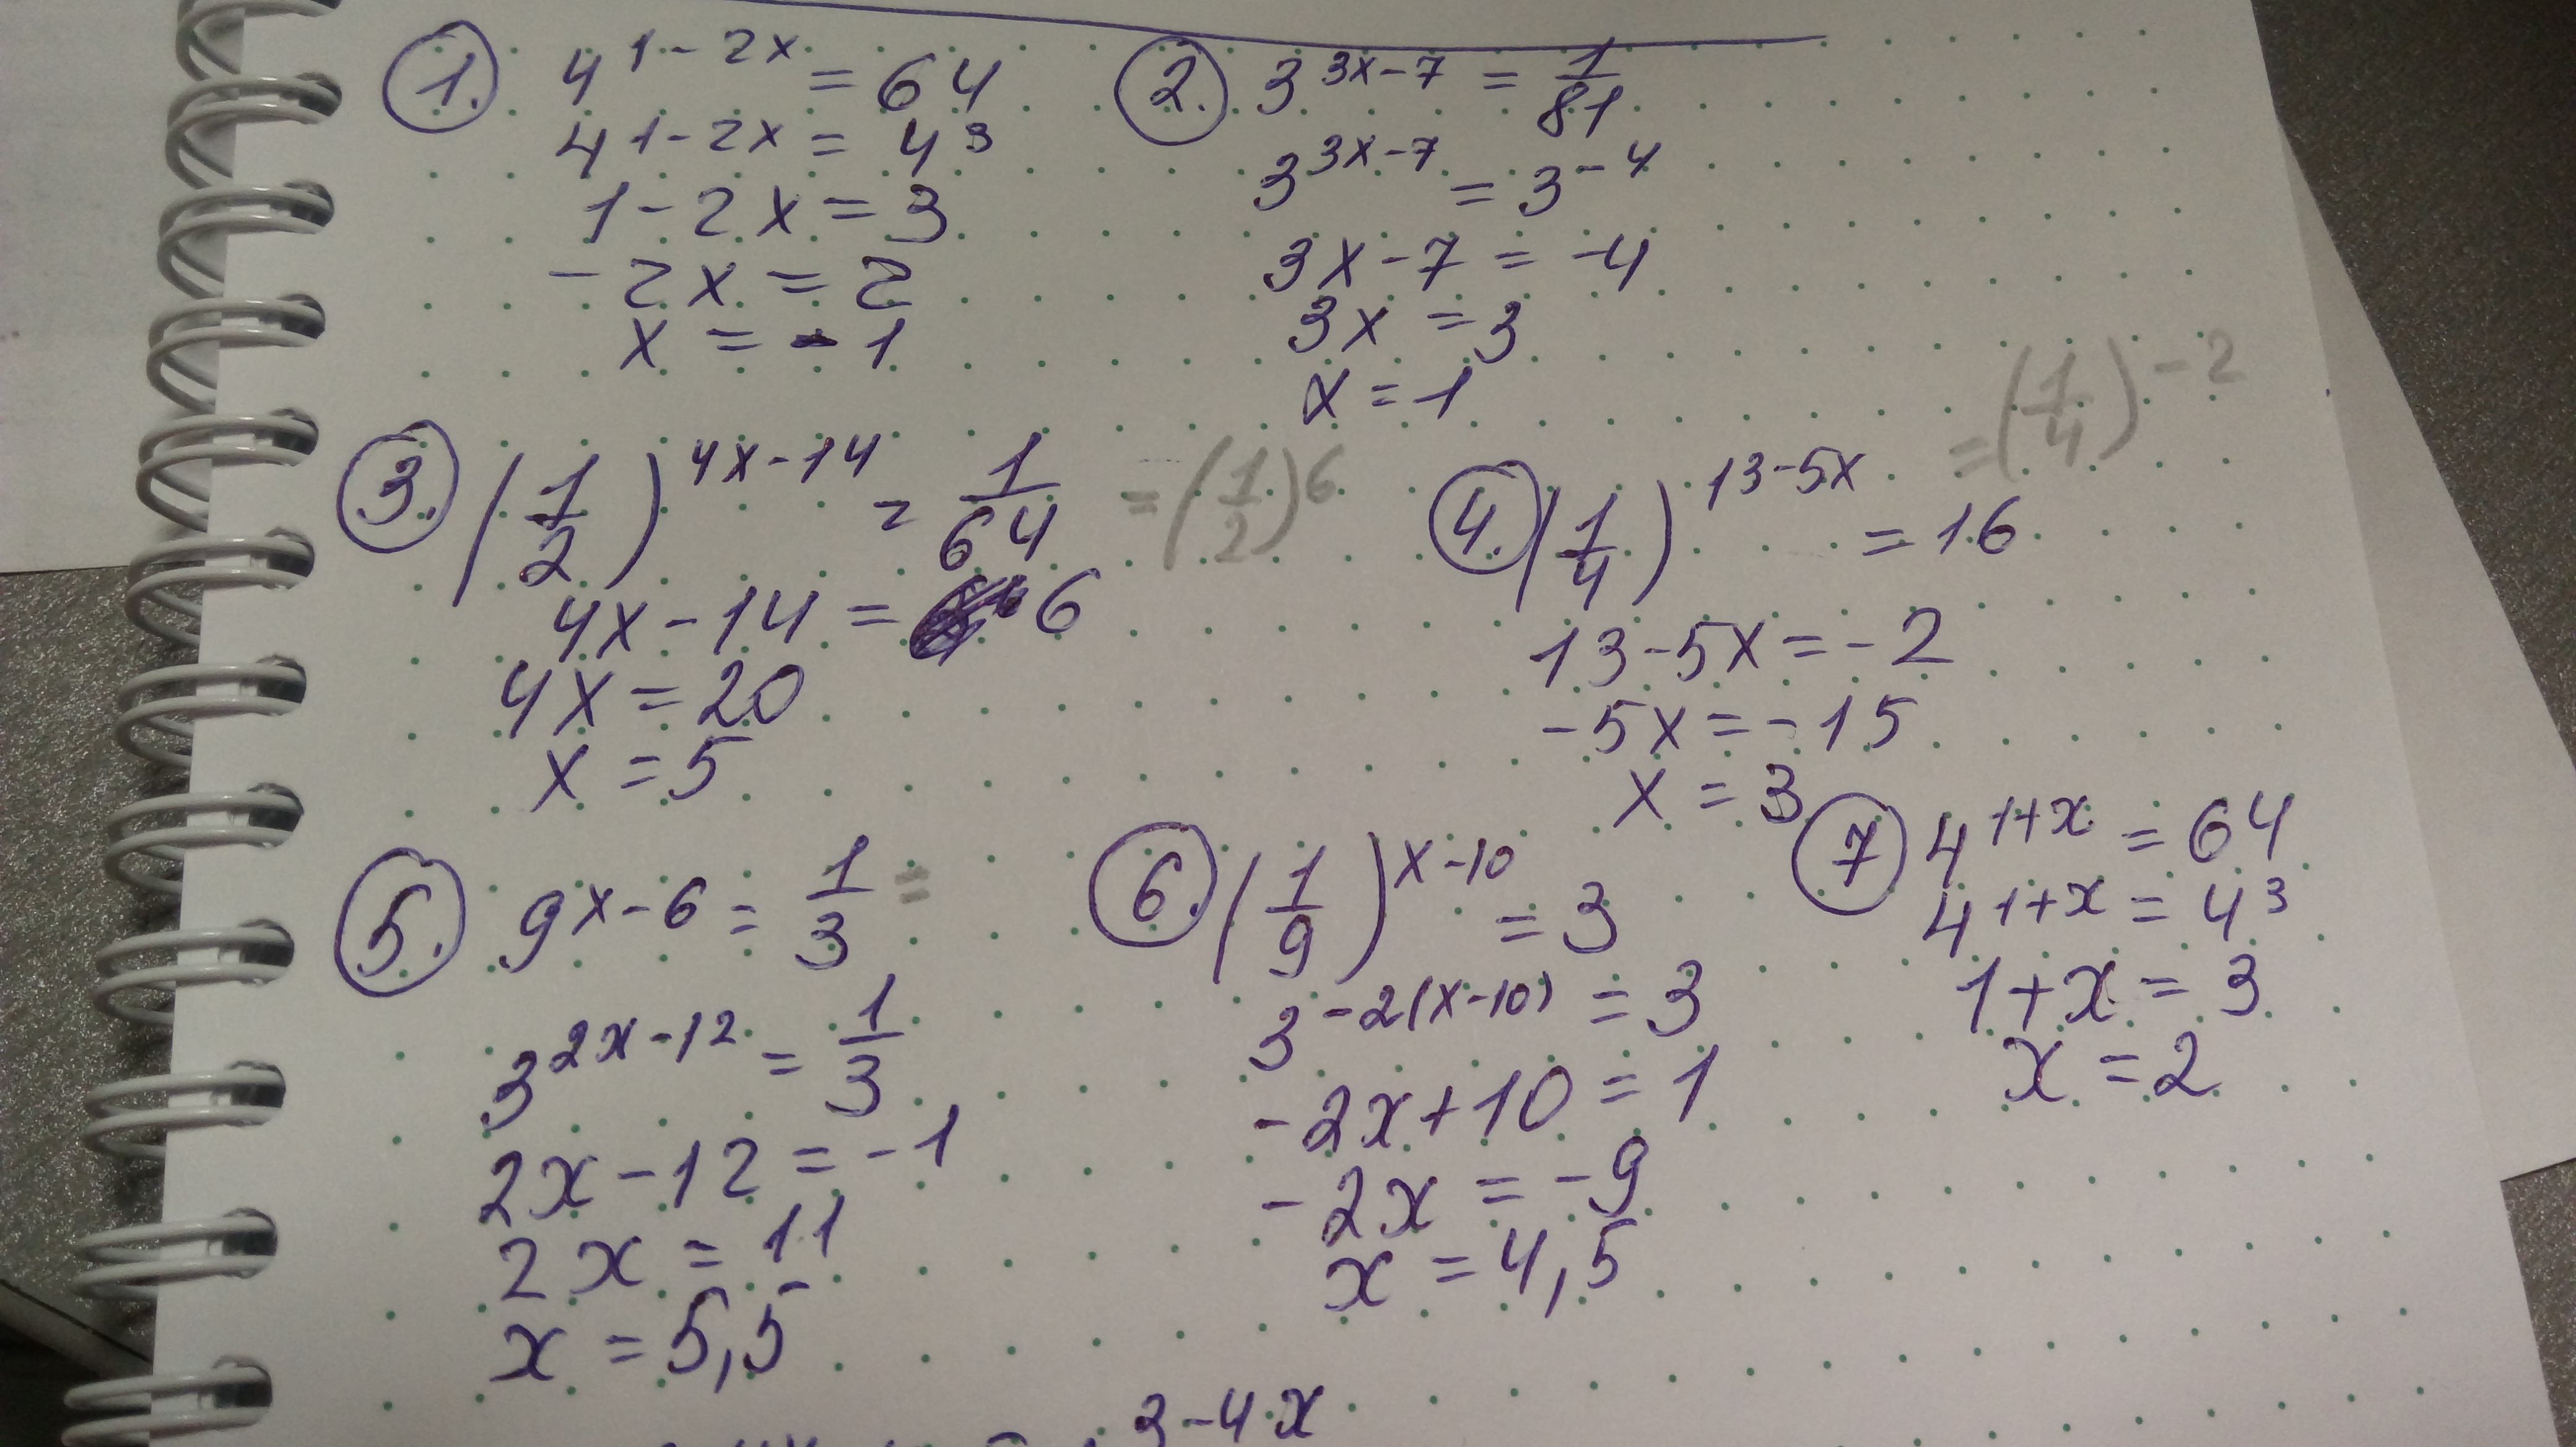 1. 4^{1-2x} = 64
4^{1-2x} = 4^3
1-2x = 3
-2x = 2
x = -1
2. 3^{3x-7} = 1/81
3^{3x-7} = 3^{-4}
3x-7 = -4
3x = 3
x = 1
3. (1/2)^{4x-14} = 1/64 = (1/2)^6
4x-14 = 6
4x = 20
x = 5
4. (1/4)^{13-5x} = 16 = (1/4)^{-2}
13-5x = -2
-5x = -15
x = 3
5. 9^{x-6} = 1/3 =
3^{2x-12} = 1/3
2x-12 = -1
2x = 11
x = 5,5
6. (1/9)^{x-10} = 3
3^{-2(x-10)} = 3
-2x+10 = 1
-2x = -9
x = 4,5
7 4^{1+x} = 64
4^{1+x} = 4^3
1+x = 3
x = 2
3-4x